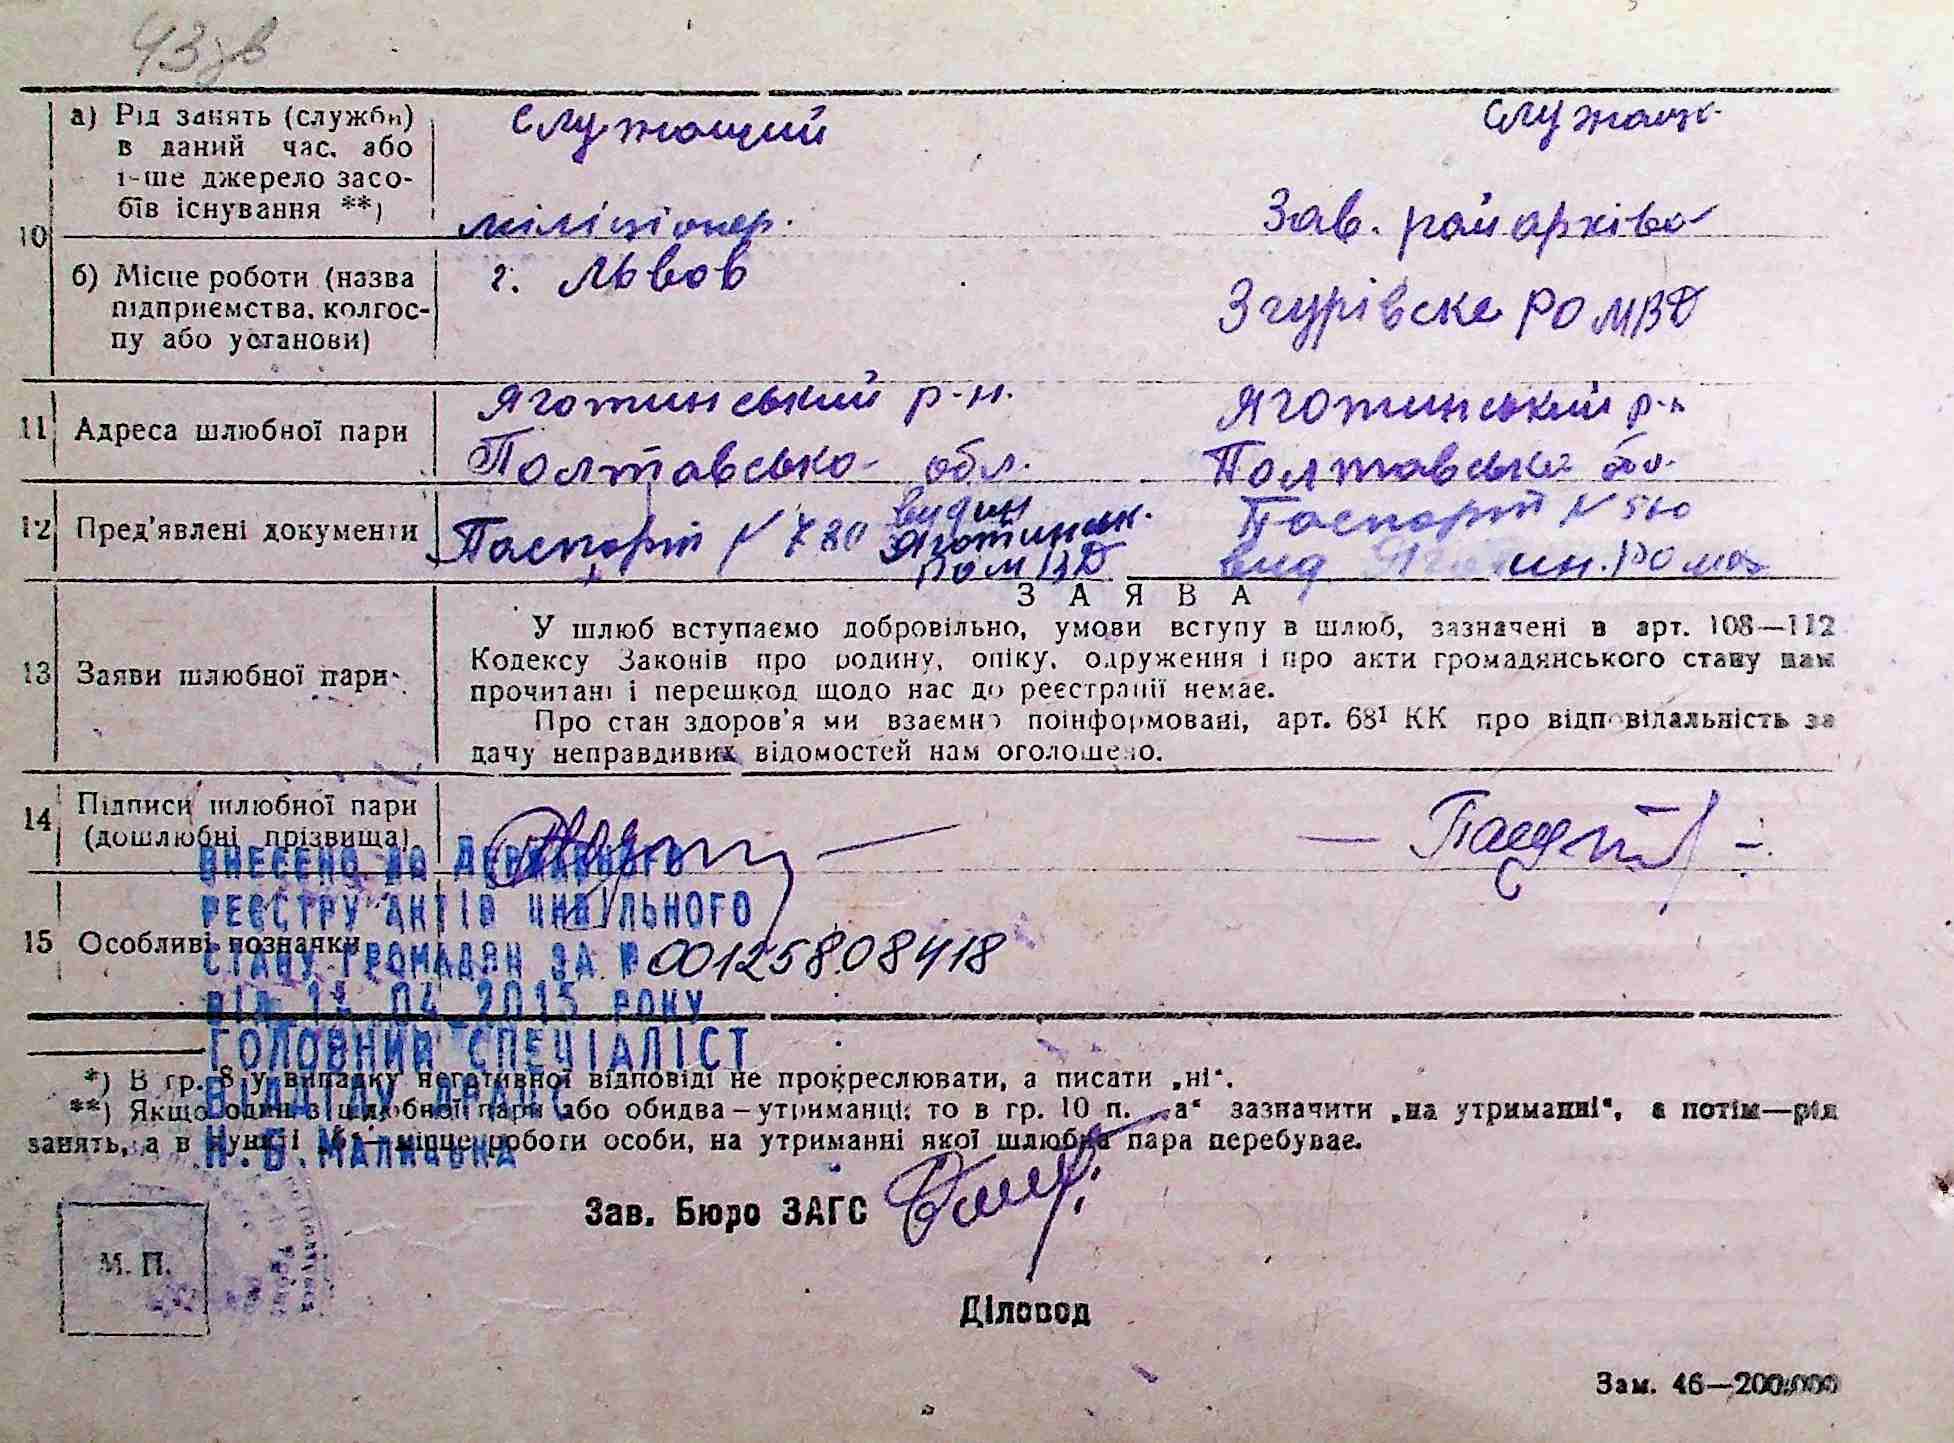 43зв
10
а) Рід занять (служби)
в даний час, або
інше джерело засо-
бів існування **)
служащий
міліціонер.
служащ.
Зав. райархіва
б) Місце роботи (назва
підприємства, колгос-
пу або установи)
г. Львов
Згурівске РО МВД
11 Адреса шлюбної пари
Яготинський р-н.
Полтавсько обл.
Яготинський р-н
Полтавська обл.
12 Пред'явлені документи
Паспорт N 780 видин
Яготинськ.
РОМВД
Паспорт N 510
вид Яготин. РО МВД
З А Я В А
13 Заяви шлюбної пари
У шлюб вступаємо добровільно, умови вступу в шлюб, зазначені в арт. 108—112
Кодексу Законів про родину, опіку, одруження і про акти громадянського стану нам
прочитані і перешкод щодо нас до реєстрації немає.
Про стан здоров'я ми взаємно поінформовані, арт. 68¹ КК про відповідальність за
дачу неправдивих відомостей нам оголошено.
14 Підписи шлюбної пари
(дошлюбні прізвища)
15 Особливі позначки
ВНЕСЕНО ДО ДЕРЖАВНОГО
РЕЄСТРУ АКТІВ ЦИВІЛЬНОГО
СТАНУ ГРОМАДЯН ЗА № 00125808418
ВІД 14 04 2015 РОКУ
ГОЛОВНИЙ СПЕЦІАЛІСТ
ВІДДІЛУ ДРАЦС
*) В гр. 8 у випадку негативної відповіді не прокреслювати, а писати „ні“.
**) Якщо один з шлюбної пари або обидва—утриманці, то в гр. 10 п. „а“ зазначити „на утриманні“, а потім—рід
занять, а в пункті „б“—місце роботи особи, на утриманні якої шлюбна пара перебуває.
Зав. Бюро ЗАГС
М. П.
Діловод
Зам. 46—200.000